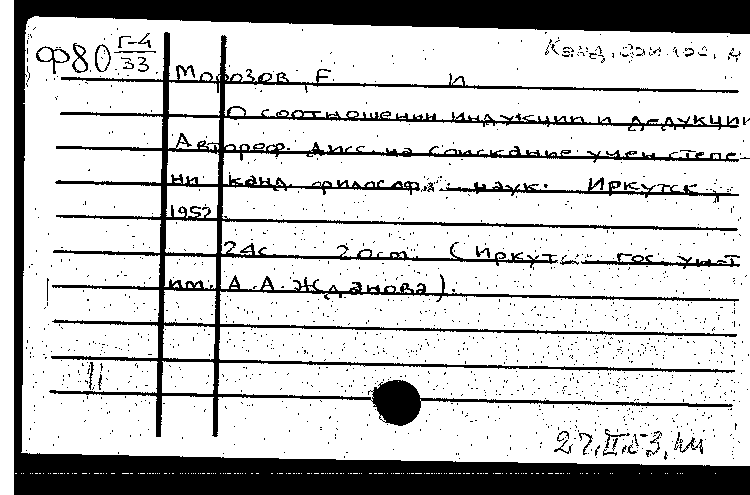 Ф80 Г-4
33
Морозов, Е И
О соотношении индукции и дедукции
Автореф. дисс. на соискание учен. степе-
ни канд. философ. наук. Иркутск,
1952.
24с. 20см. (Иркут. гос. ун-т
им. А. А. Жданова).
27.II.53.